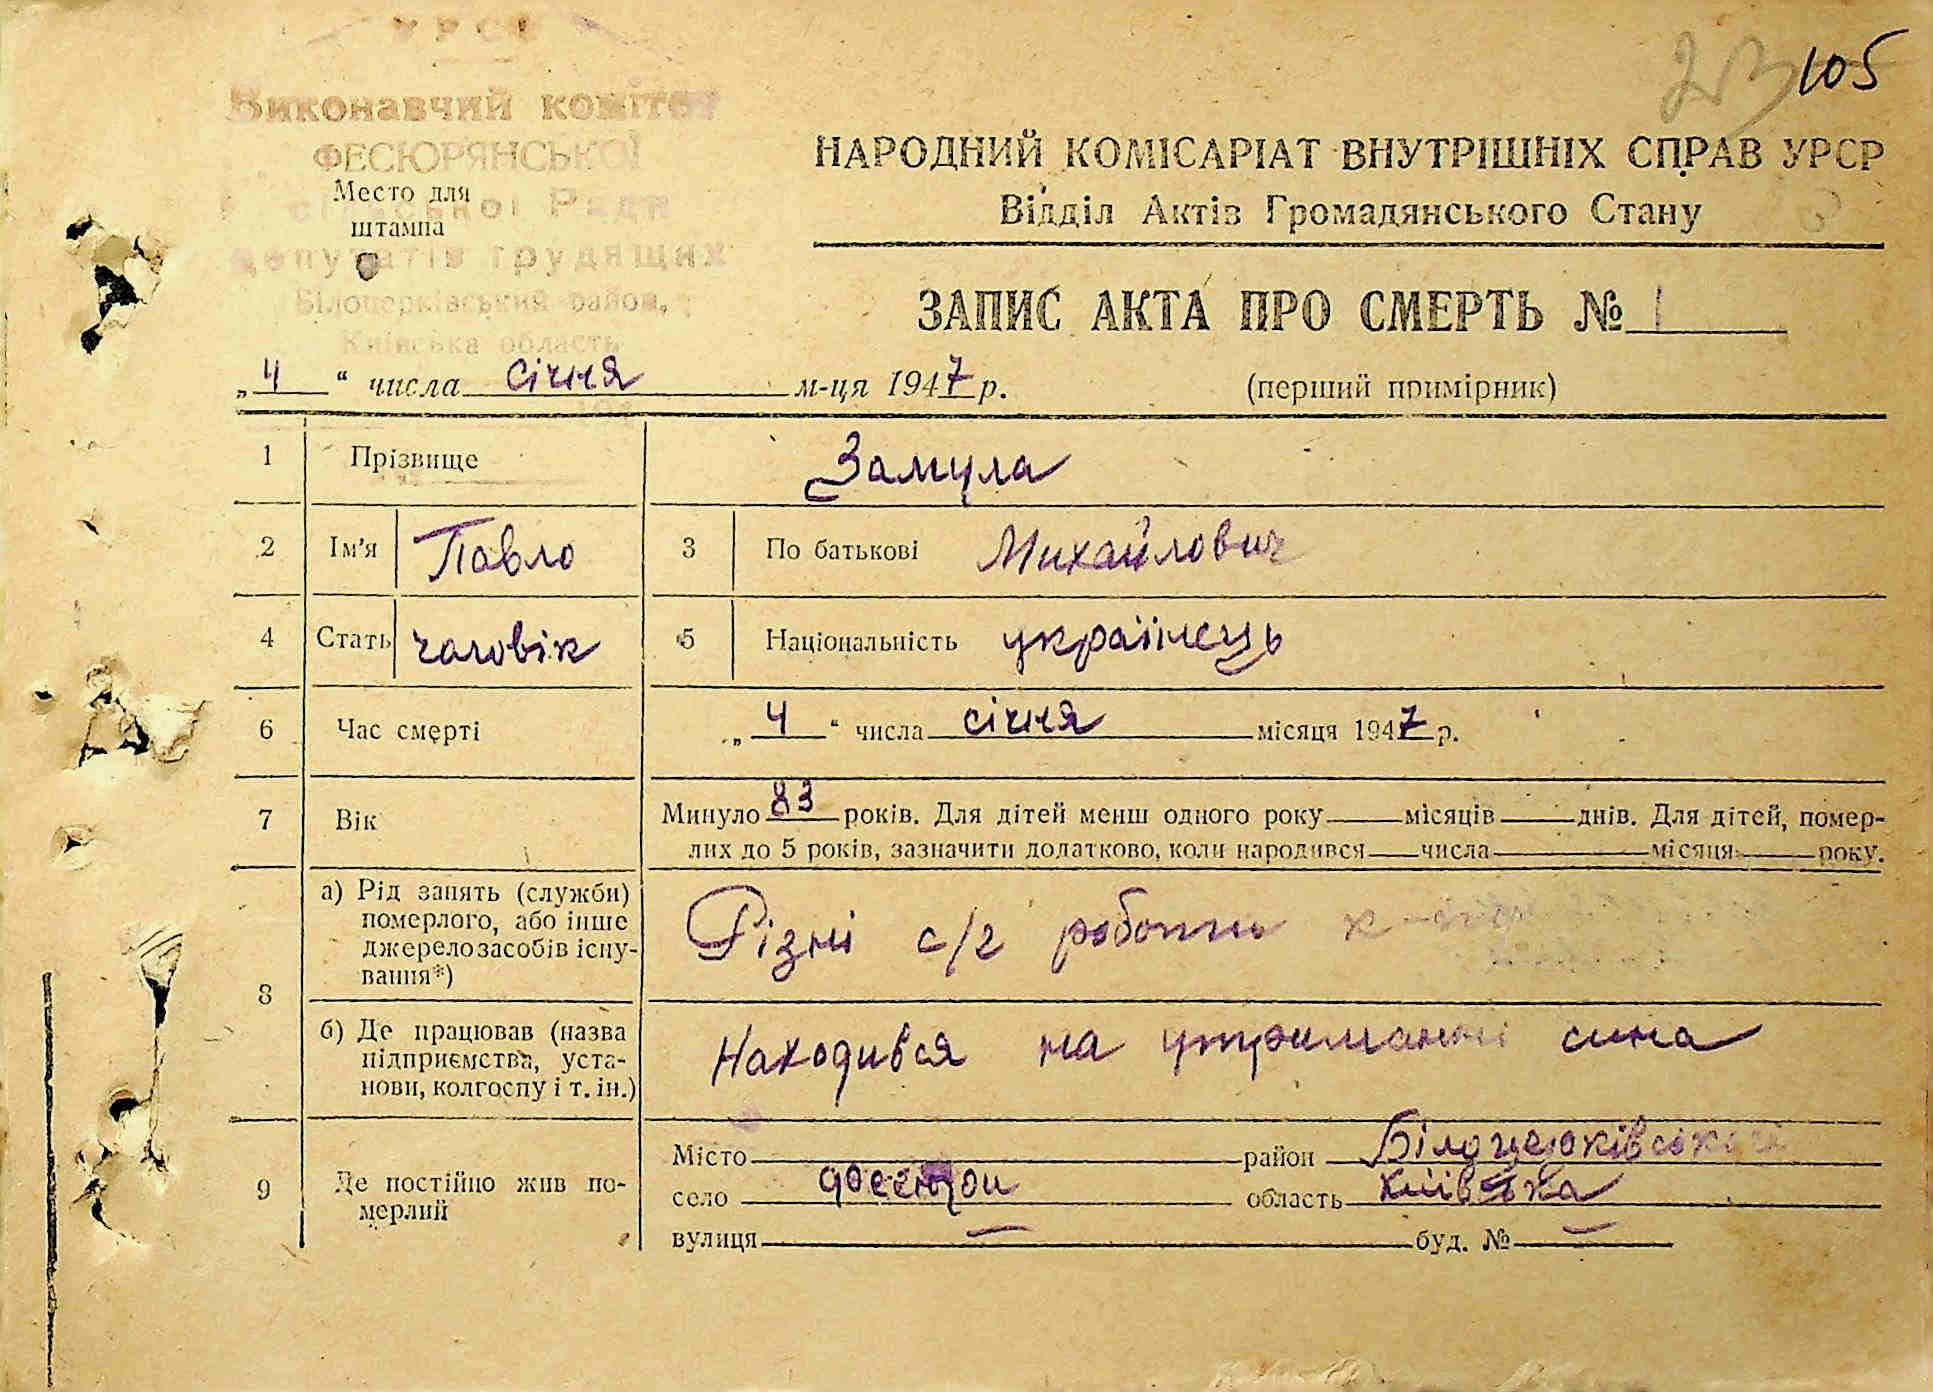 УРСР
105
Виконавчий комітет
ФЕСЮРЯНСЬКОЇ
Место для
сільської Ради
штампа
депутатів трудящих
Білоцерківський район,
Київська область
НАРОДНИЙ КОМІСАРІАТ ВНУТРІШНІХ СПРАВ УРСР
Відділ Актів Громадянського Стану
ЗАПИС АКТА ПРО СМЕРТЬ № 1
„4“ числа січня м-ця 1947 р. (перший примірник)
1 Прізвище Замула
2 Ім'я Павло 3 По батькові Михайлович
4 Стать чоловік 5 Національність українець
6 Час смерті „4“ числа січня місяця 1947 р.
7 Вік Минуло 83 років. Для дітей менш одного року місяців днів. Для дітей, помер-
лих до 5 років, зазначити додатково, коли народився числа місяця року.
8 а) Рід занять (служби)
померлого, або інше
джерело засобів існу-
вання*)
Різні с/г роботи
б) Де працював (назва
підприємства, уста-
нови, колгоспу і т. ін.)
Находився на утриманні сина
9 Де постійно жив по-
мерлий
Місто район Білоцерківський
село Фесюри область Київська
вулиця — буд. № —